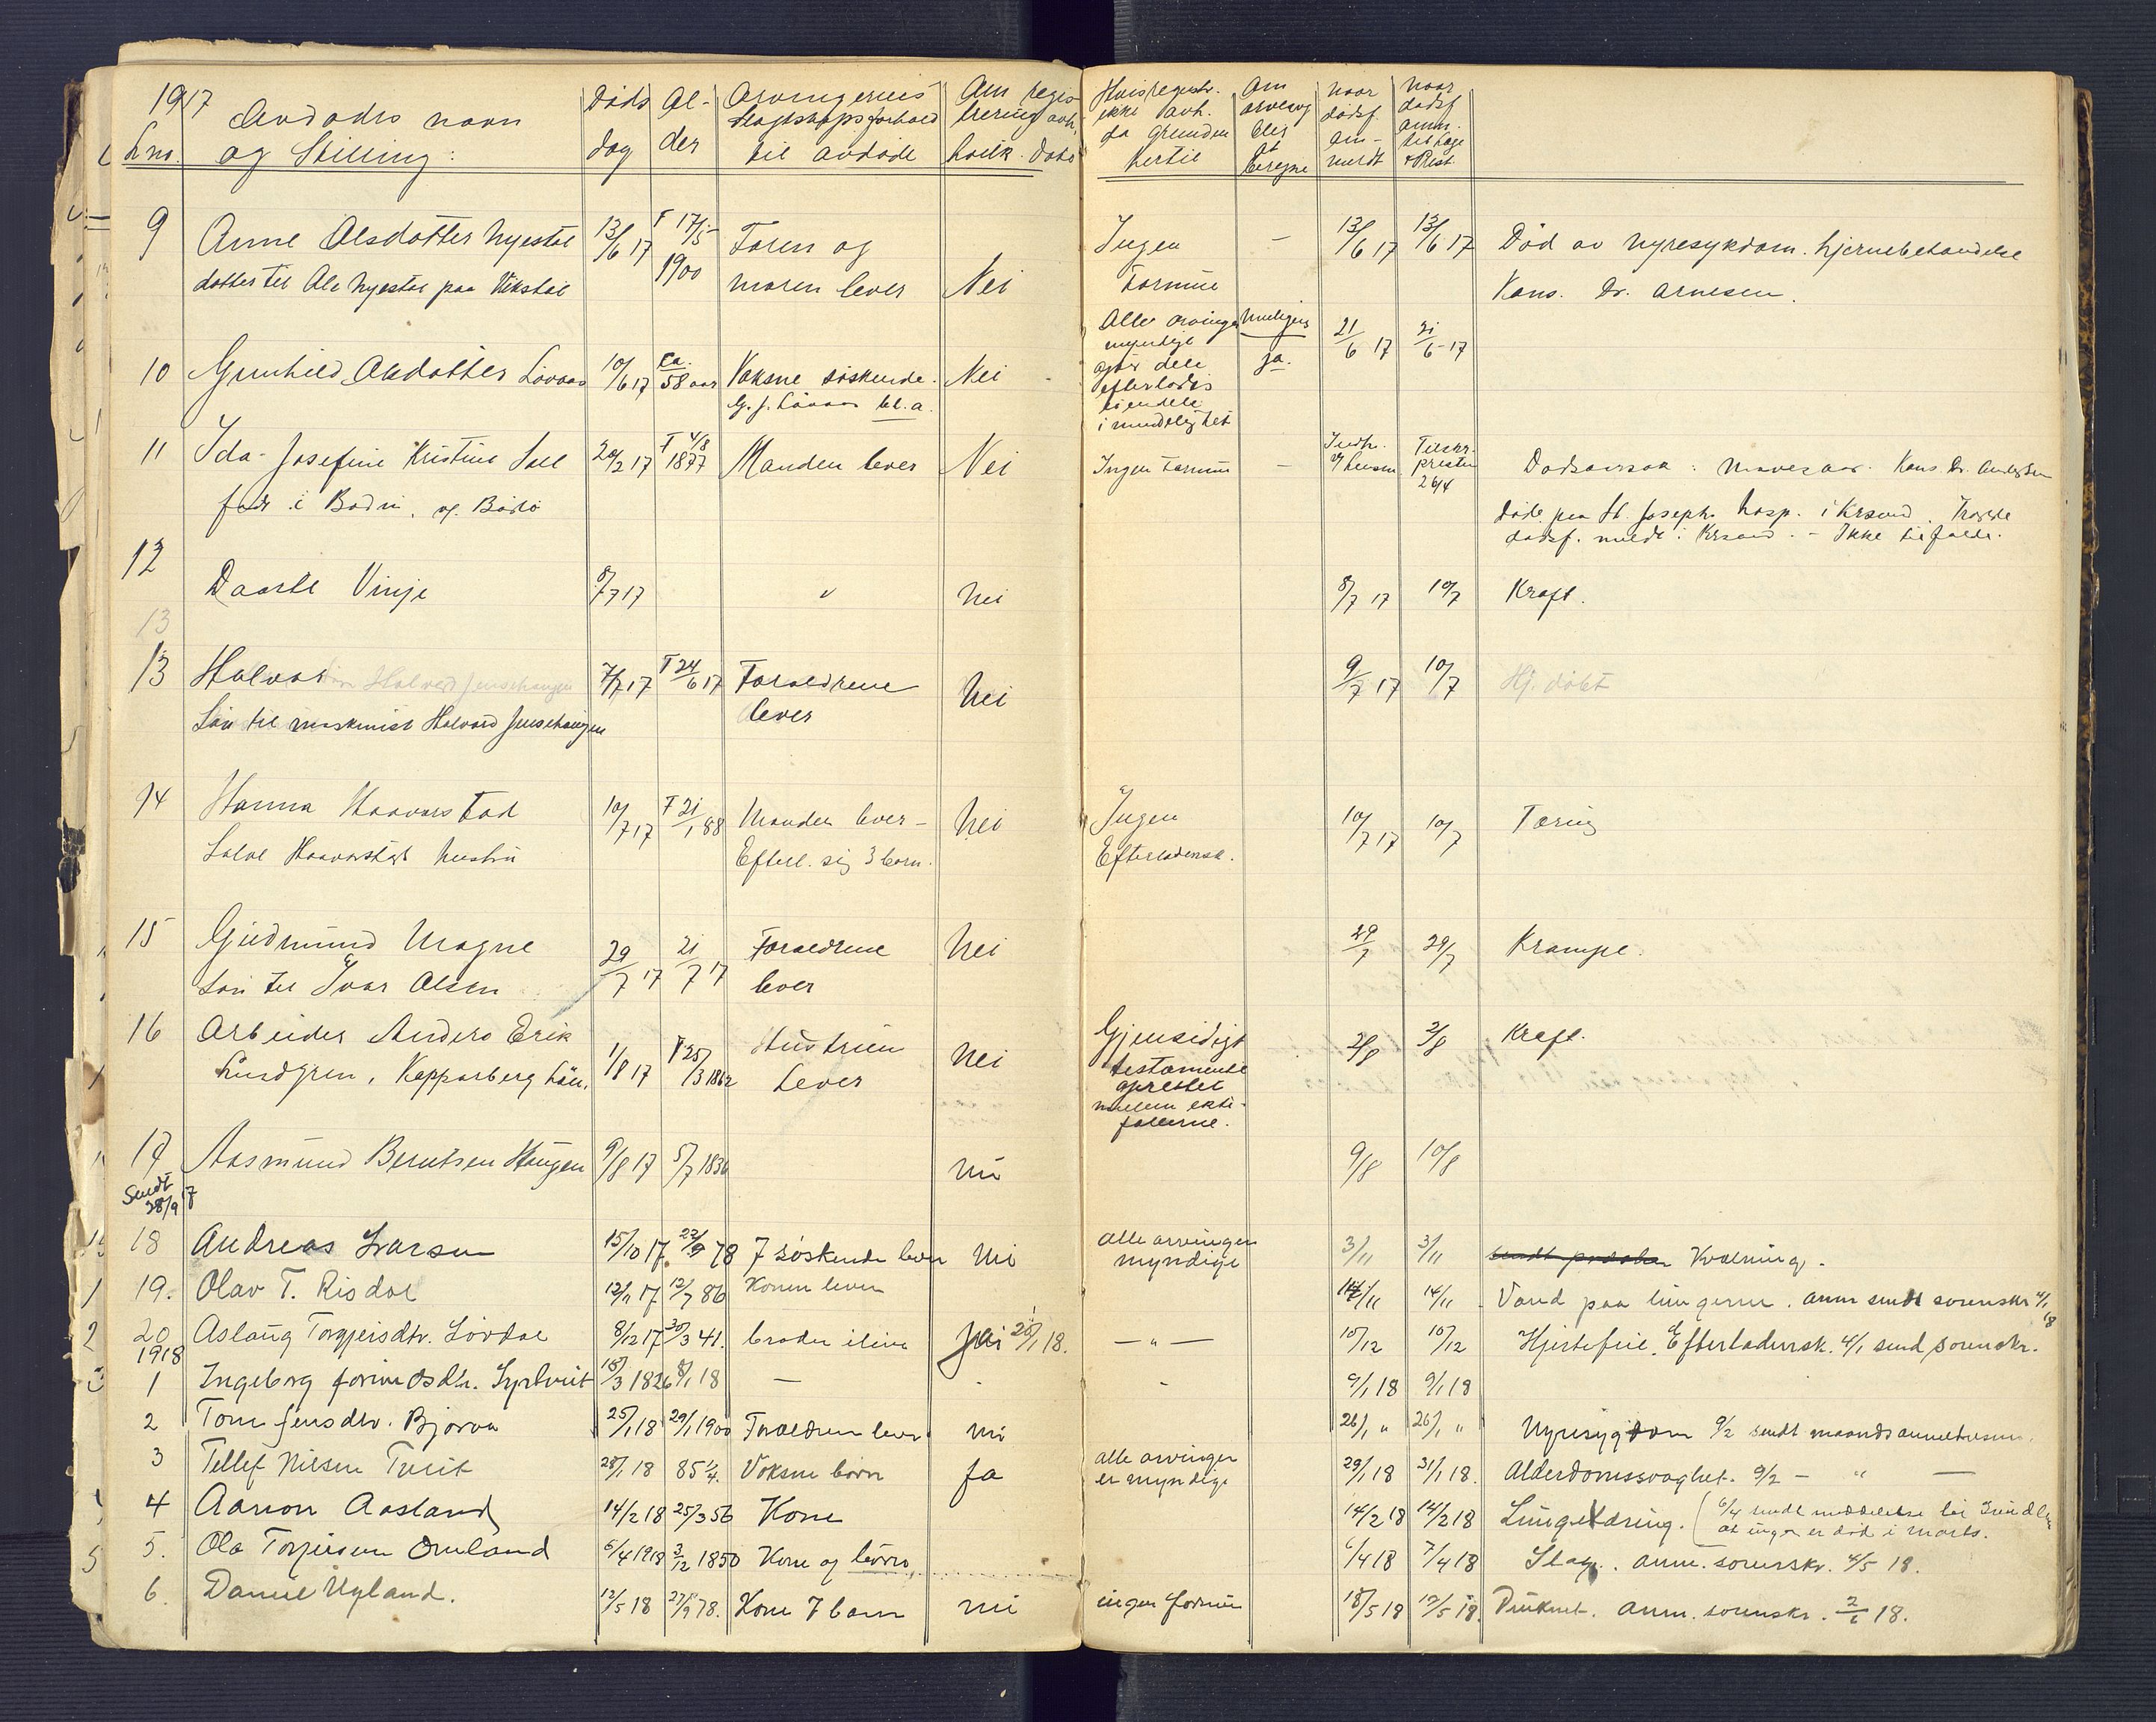 1917
L no.
Avdødes navn
og Stilling:
Døds
dag
Al-
der
Arvingernes
slagtskapsforhold
til avdøde
Om regis-
trering avh.
hvilk. Dato
Hvis registr.
ikke avh.
da grunden
hertil
Om
arveavg
blir
at
beregne
naar
dødsf.
an-
meldt
naar
dødsf
anm.
9 Anne Olsdatter Nyestøl 13/6 17 F 17/5 1900 Faren og Ingen — 13/6 17 13/6 17 Død av nyresykdom. hjernebetændelse
datter til Ole Nyestøl paa Vikstøl moren lever Nei Formue Kons. Dr. Arnesen.
10 Gunhild Aadatter Løvaas 10/6 17 ca. 58 aar Voksne søskende. Nei Alle arvinger myndige Muligens ja. 21/6 17 21/6 17
G. J. Løvaas bl. a.
gjør dele
efterlodes
eiendele
i mindelighet
11 Ida Josefine Kristine Lall 20/2 17 F 4/8 1877 Manden lever Nei Ingen Formue — 26/4 Dødsaarsak: Mavesaar. Kons. Dr.
født i Bodin, pr. Bodø
døde paa St. Josephs hosp. i Krsand.
dødsf. meldt i Krsand. – Ikke
12 Daarte Vinje 8/7 17 " Nei 8/7 17 10/7 Kræft.
13
13 Halvor 7/7 17 F 24/6 17 Forældrene lever Nei 9/7 17 10/7 Hj. døbt
Søn til maskinist Halvard Jenshaugen
14 Hanna Haavorstad 10/7 17 F 21/1 88 Manden lever – Nei Ingen 10/7 17 10/7 Tæring
Salve Haavorstads hustru Efterl. sig 3 børn. Efterladensk.
15 Gudmund Magne 29/7 17 21/7 17 Forældrene Nei 29/7 29/7 Krampe.
Søn til Ivar Olsen lever
16 Arbeider Anders Erik 1/8 17 F 25/3 1862 Hustruen Nei Gjensidigt 2/8 2/8 Kræft.
Lindgren, Kopparberg Län. Lever testamente
oprettet
mellem ekte-
fællerne.
17 Aasmund Berntsen Haugen 9/8 17 5/7 1836 Nei 9/8 10/8
Sendt
28/9 17
18 Andreas Larsen 15/10 17. 22/9 78 7 søskende lever Nei alle arvinger 3/11 3/11 Kvælning.
myndige
19. Olav T. Risdal 12/11 17 12/7 86 Konen lever 14/11 14/11 Vand paa lungerne. anm sendt sorenskr 4/1 18
20 Aslaug Torgjeisdtr. Løvdal 8/12 17 30/3 41. broder ilive 25/1 18. — " — 10/12 10/12 Hjertefeil. Efterladensk. 4/1 send sorenskr.
1918
1 Ingeborg 15/3 1826 8/1 18 — - - 9/1 18 9/1 18
2 Tone Jensdtr. Bjorva 25/1 18 29/1 1900 Forældrene lever nei 26/1 " 26/1 " Nyresygdom 9/2 sendt maanedsanmeldelsen.
3 Tellef Nilsen Tveit 28/1 18 85 1/4. Voksne børn Ja alle arvinger 29/1 18 31/1 18. Alderdomssvaghet. 9/2 — " —
er myndige
4 Aanon Aasland 14/2 18 25/3 56 Kone 14/2 18 14/2 18 Lungetæring. (6/4 sendt meddelelse til
at ingen er død i Marts.
5. Ola Torjussen Omland 6/4 1918 3/12 1850 Kone og børn 6/4 18 7/4 18 Slag. anm. sorenskr. 4/5 18.
6. Daniel Uyland. 12/5 18 27/9 78. Kone 7 barn nei ingen formue 18/5 18 12/5 18. Druknet. anm. sorenskr. 2/6 18.